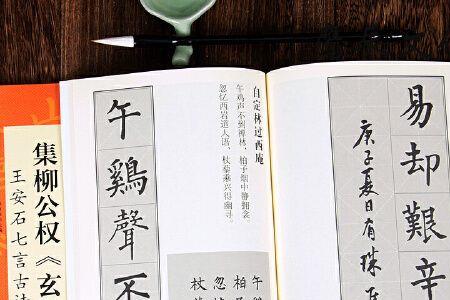 易却艱辛
庚子夏日有珠
自定林过西庵
午鸡声不到禅林，柏子烟中静拥衾。
忽忆西岩道人语，杖藜乘兴得幽寻。
午
柏子
忽
杖
午鷄聲不
集柳公权《玄
王安石七言古